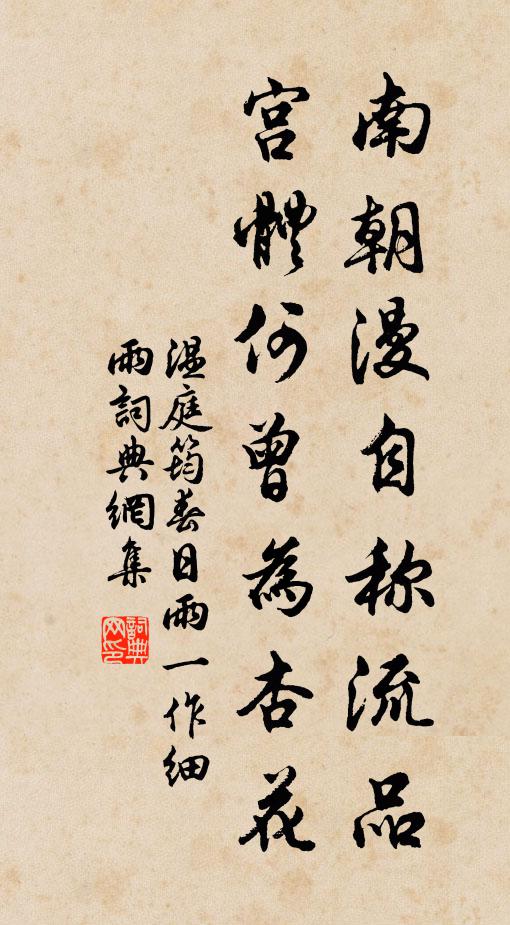 南朝漫自称流品
宫體何曾為杏花
温庭筠春日雨一作细
雨詞典網集
詞典
网印